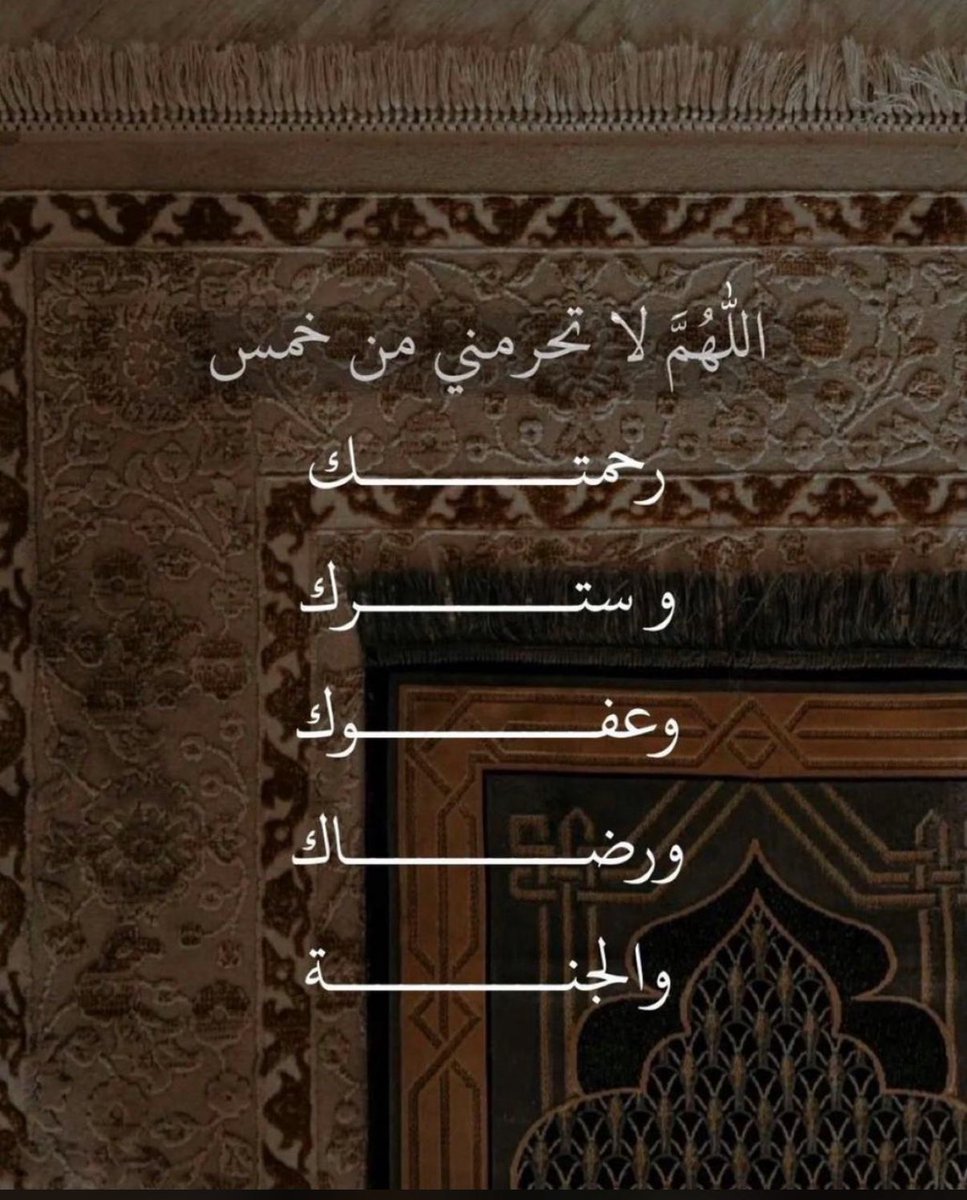 اللّٰهُمَّ لا تحرمني من خمس
رحمتـــــــــك
و ستـــــــــرك
وعفـــــــــوك
ورضـــــــــاك
والجنـــــــــة